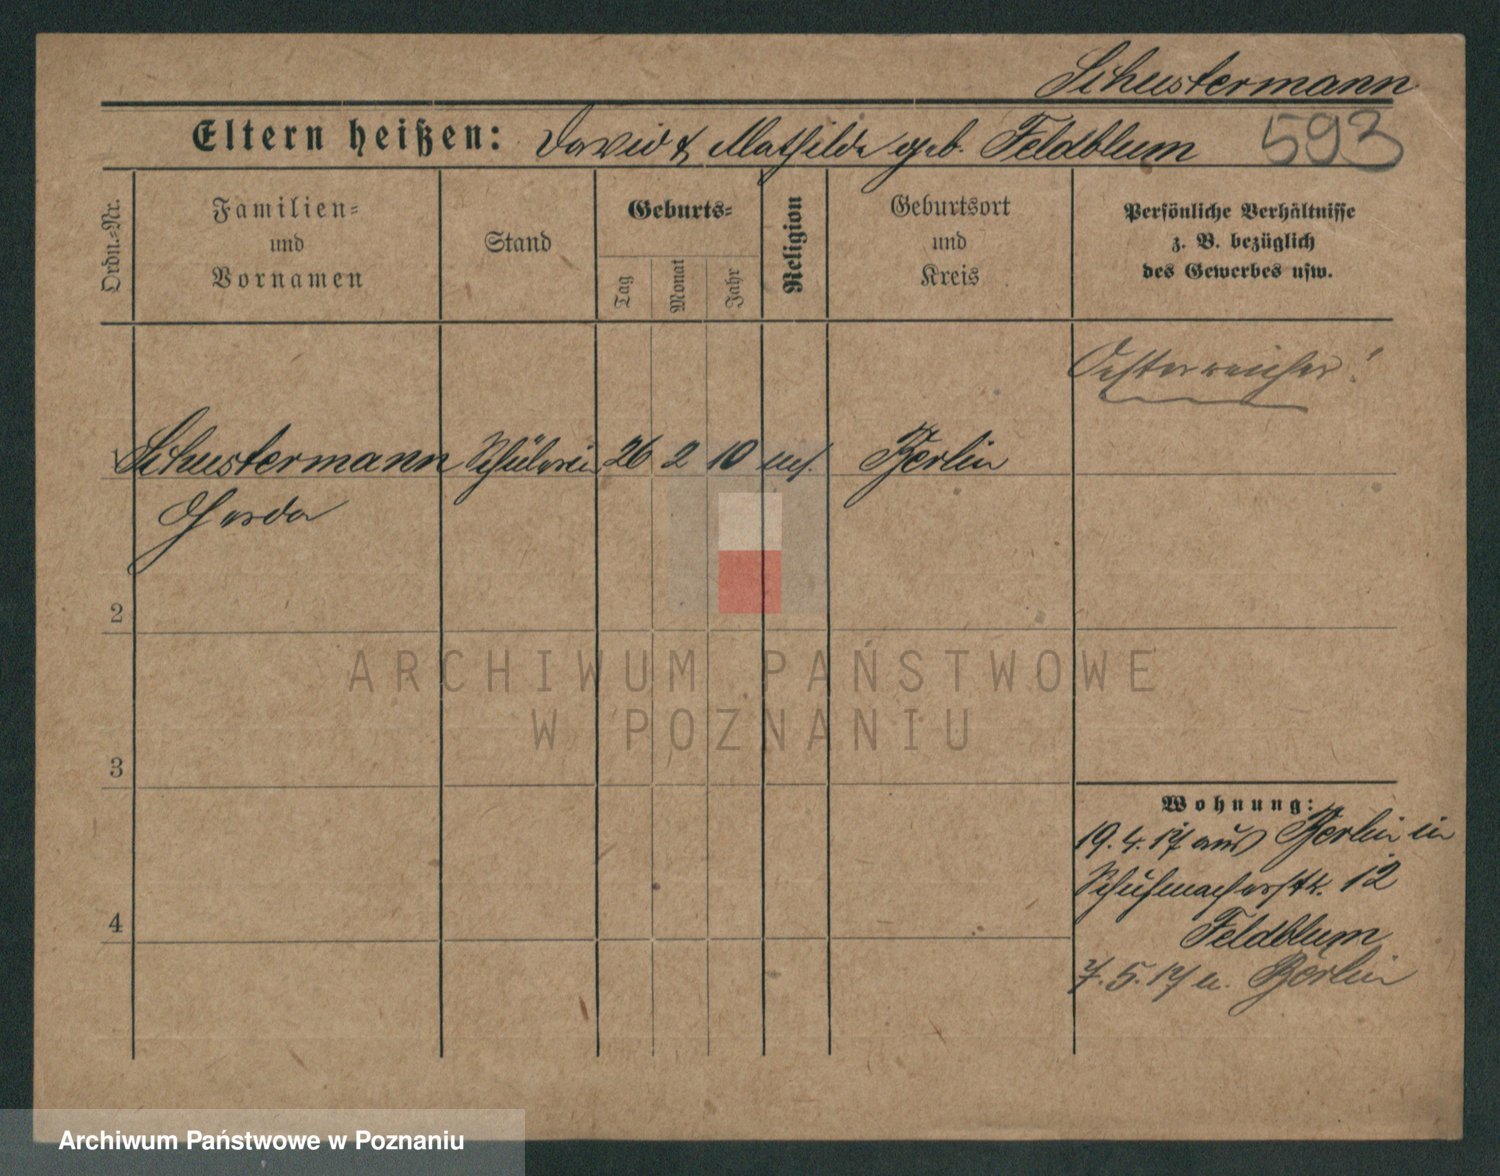 Schustermann
Eltern heißen: David & Mathilde geb. Feldblum 593
Ordn.-Nr.
Familien-
und
Vornamen
Stand
Geburts-
Tag
Monat
Jahr
Religion
Geburtsort
und
Kreis
Persönliche Verhältnisse
z. B. bezüglich
des Gewerbes usw.
Oesterreicher!
Schustermann Schülerin 26 2 10 Berlin
Gerda
2
3
4
Wohnung:
19. 4. 17 aus Berlin in
Schuhmacherstr. 12
Feldblum
7. 5. 17 n. Berlin
ARCHIWUM PAŃSTWOWE
W POZNANIU
Archiwum Państwowe w Poznaniu